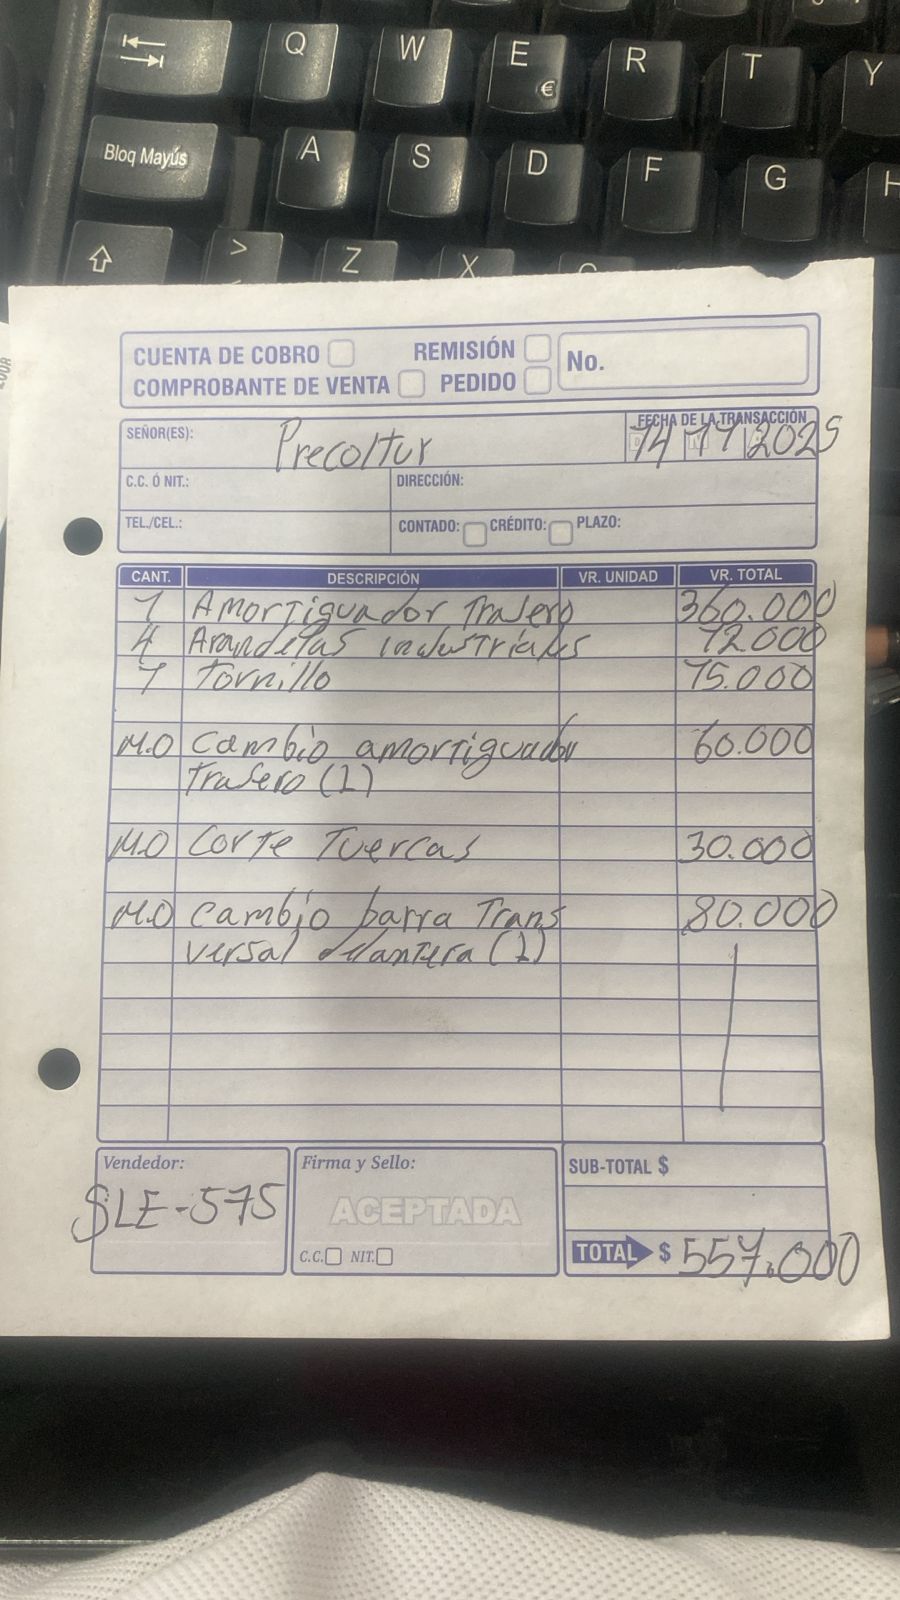 Q W E R T Y
€
Bloq Mayús A S D F G H
> Z X C
CUENTA DE COBRO REMISIÓN No.
COMPROBANTE DE VENTA PEDIDO
SEÑOR(ES): Precoltur FECHA DE LA TRANSACCIÓN
14 11 2025
C.C. Ó NIT.: DIRECCIÓN:
TEL./CEL.: CONTADO: CRÉDITO: PLAZO:
CANT. DESCRIPCIÓN VR. UNIDAD VR. TOTAL
1 Amortiguador Trasero 360.000
4 Arandelas industriales 12.000
1 Tornillo 15.000
M.O Cambio amortiguador 60.000
Trasero (1)
M.O Corte Tuercas 30.000
M.O Cambio barra Trans 80.000
versal delantera (1)
Vendedor: Firma y Sello: SUB-TOTAL $
SLE-575 ACEPTADA
C.C. NIT. TOTAL $ 557.000